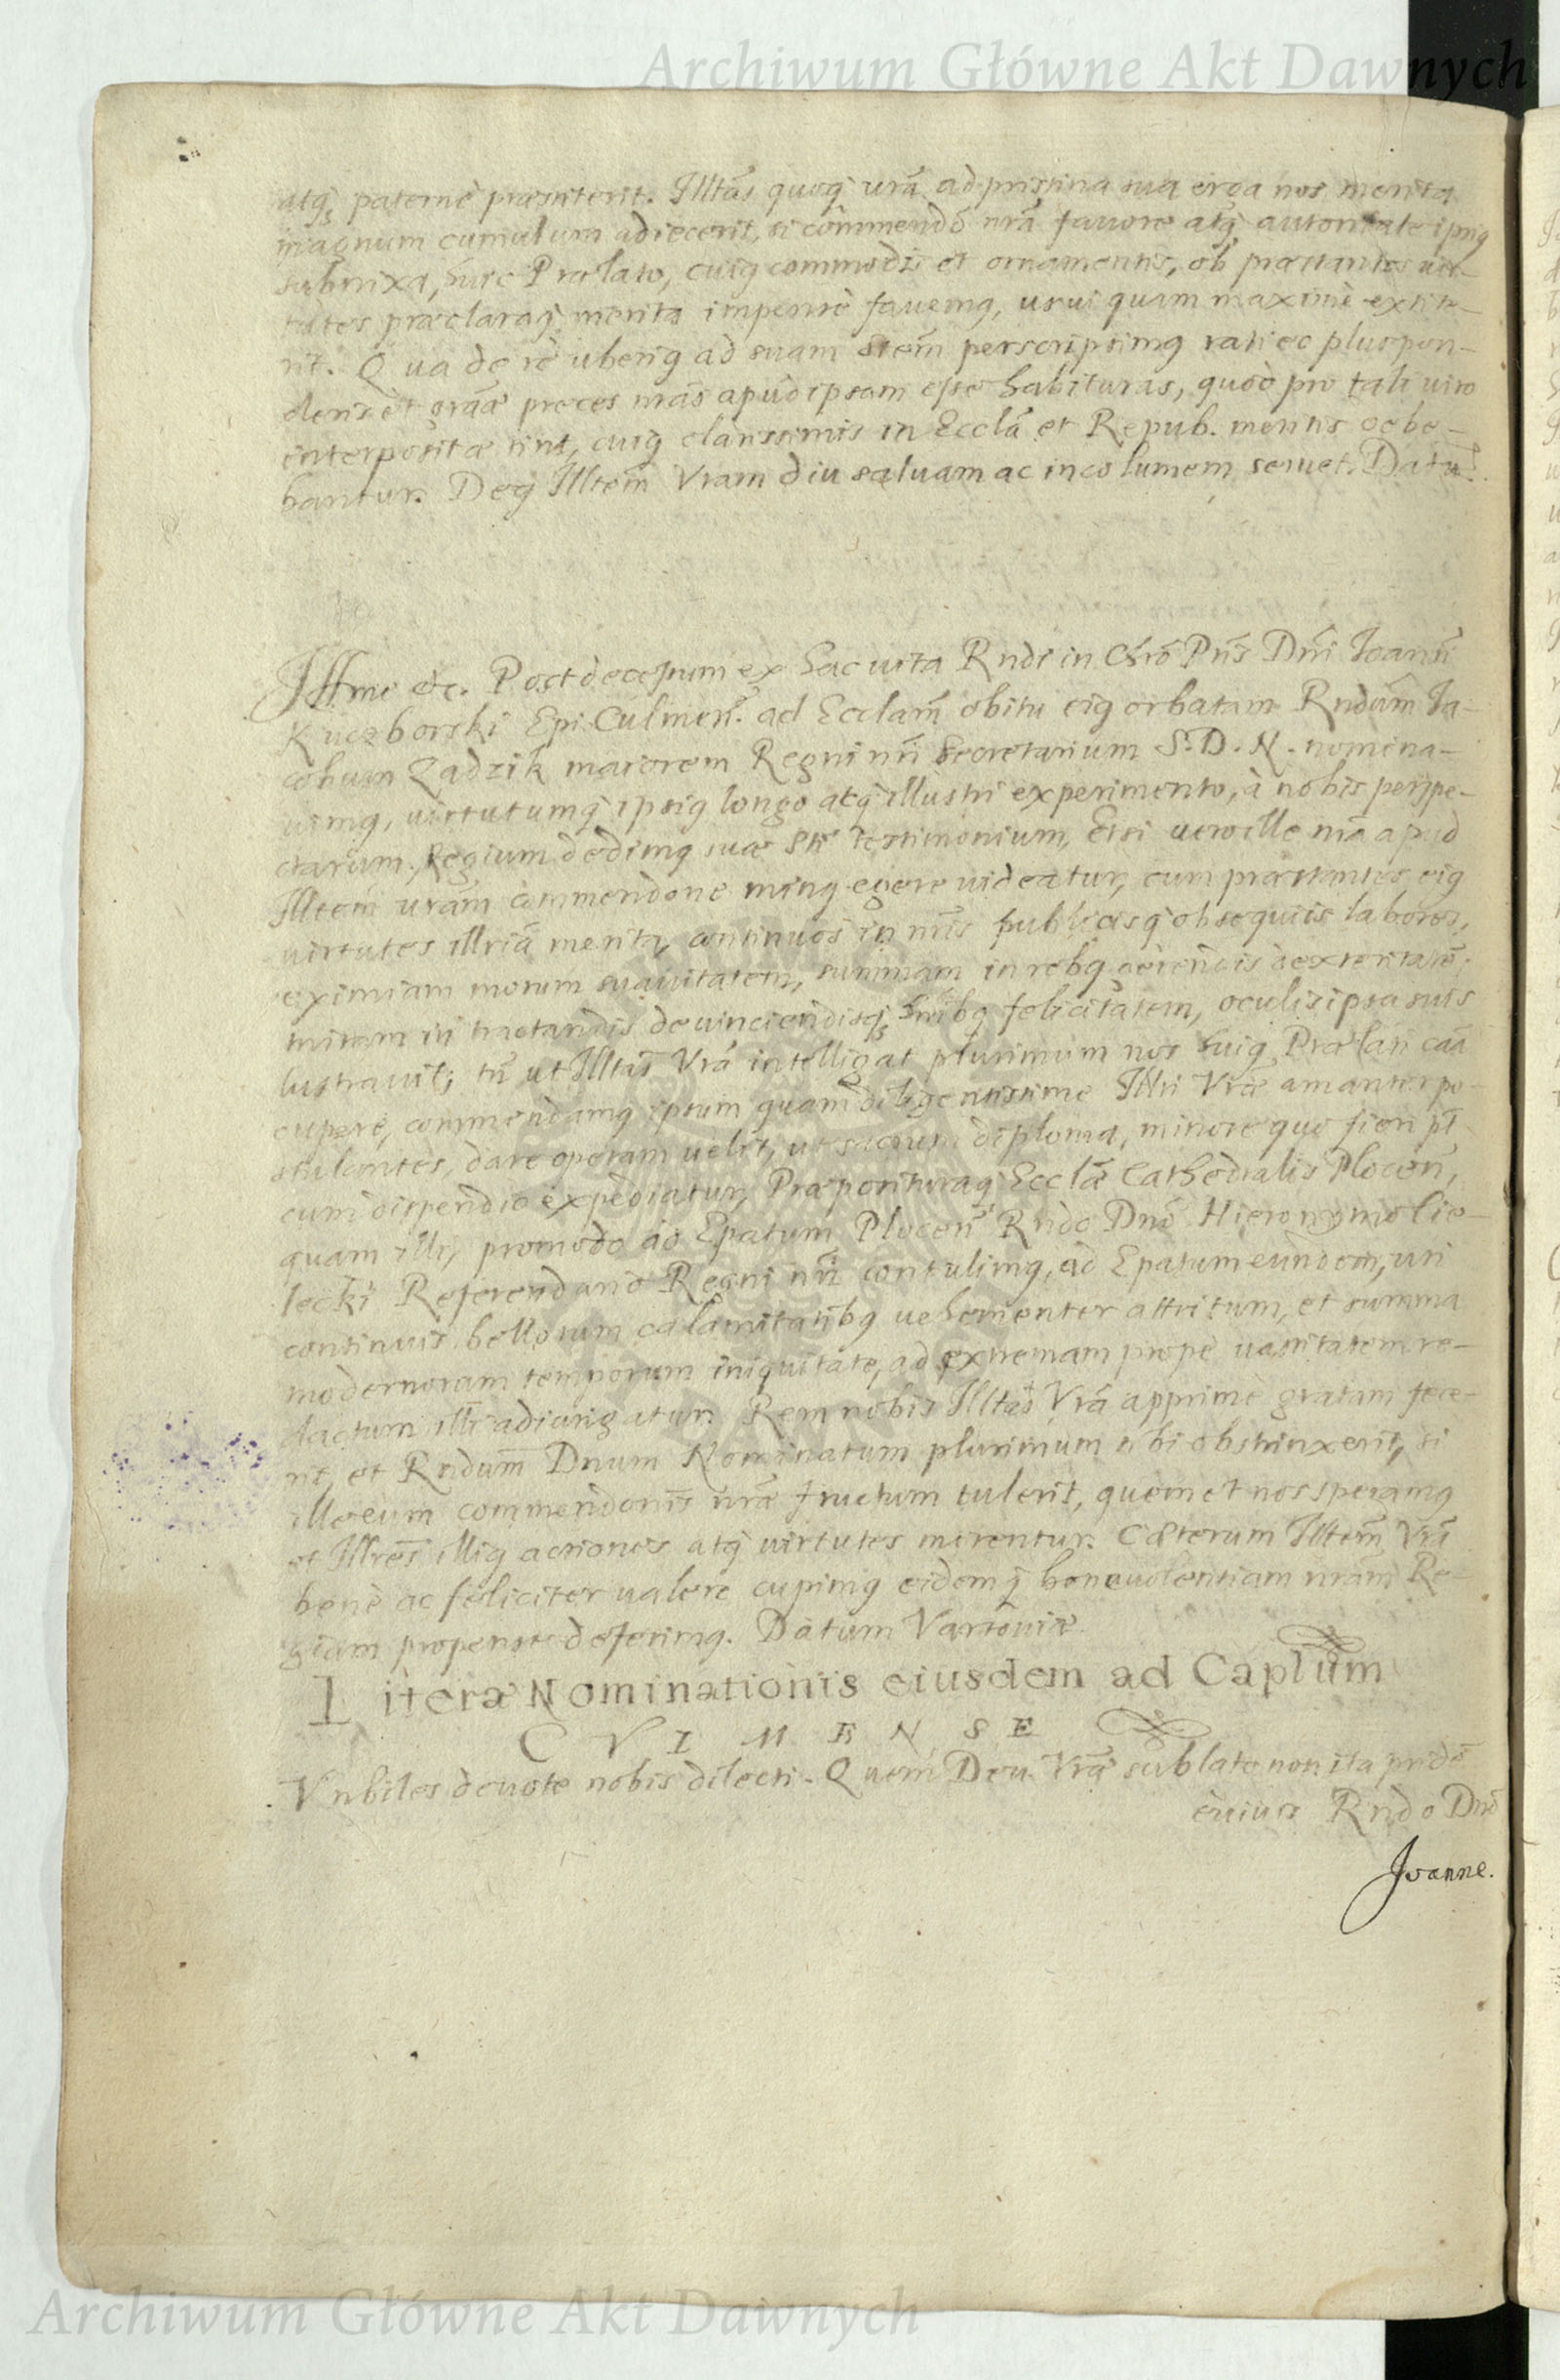 Archiwum Główne Akt Dawnych
atq; paterne præstiterit. Illtas quoq; vra ad pristina sua erga nos merita
magnum cumulum adiecerit, si commendõ nrã fauore atq; autoritate ipsius
subnixa, huic Prælato, cuius commodis et ornamentis, ob præstantes vir-
tutes præclaraq; merita impense fauemus, usui quam maxime extite-
rit. Qua de re uberius ad suam Stem perscripsimus rati eo plus pon-
deris et grãæ preces nrãs apud ipsam esse habituras, quod pro tali viro
interpositæ sint, cuius clarissimis in Ecclã et Repub. meritis debe-
bantur. Deus Illtem Vram diu saluam ac incolumem seruet. Datu.
Illme etc. Post decessum ex hac vita Rndi in Chrõ Pris Dni Joannis
Kuczborski Epi Culmen. ad Ecclam obitu eius orbatam Rndum Ja-
cobum Zadzik maiorem Regni nri Secretarium S. D. N. nomina-
uimus, virtutumq; ipsius longo atq; illustri experimento, à nobis perspe-
ctarum, Regium dedimus suæ Sti testimonium, Etsi vero ille nrã apud
Illtem vram commendone minus egere videatur, cum præstantes eius
virtutes illriã merita, continuos in nris publicisq; obsequiis labores,
eximiam morum suauitatem, summam in rebus gerendis dexteritatẽ,
miram in tractandis deuinciendisq; hoibus felicitatem, oculis ipsa suis
lustrauit; tñ ut Illtas Vrã intelligat plurimum nos huius Prælati caã
cupere, commendamus ipsum quam diligentissime Illti Vræ amanter po-
stulantes, dare operam velit, ut sacrum diploma, minore quo fieri pt
cum dispendio expediatur, Præposituraq; Ecclæ Cathedralis Plocen,
quam illi, promodo ad Epatum Plocen Rndo Dno Hieronymo Cie-
lecki Referendario Regni nri contulimus, ad Epatum eundem, uti
continuis bellorum calamitatibus vehementer attritum, et summa
modernorum temporum iniquitate, ad extremam prope vastitatem re-
dactum illi adiungatur. Rem nobis Illtas Vrã apprime gratam fece-
rit, et Rndum Dnum Nominatum plurimum sibi obstrinxerit, si
ille eum commendonis nræ fructum tulerit, quem et nos speramus
et Illres illius actiones atq; virtutes merentur. Cæterum Illtem Vrã
bene ac feliciter valere cupimus eidemq; beneuolentiam nram Re-
giam propense deferimus. Datum Varsouiæ
Literæ Nominationis eiusdem ad Caplum
CVLMENSE
Vnbiles deuote nobis dilecti. Quem Deu. Vræ sublato non ita pridẽ
è viuis Rndo Dnõ
Joanne.
Archiwum Główne Akt Dawnych